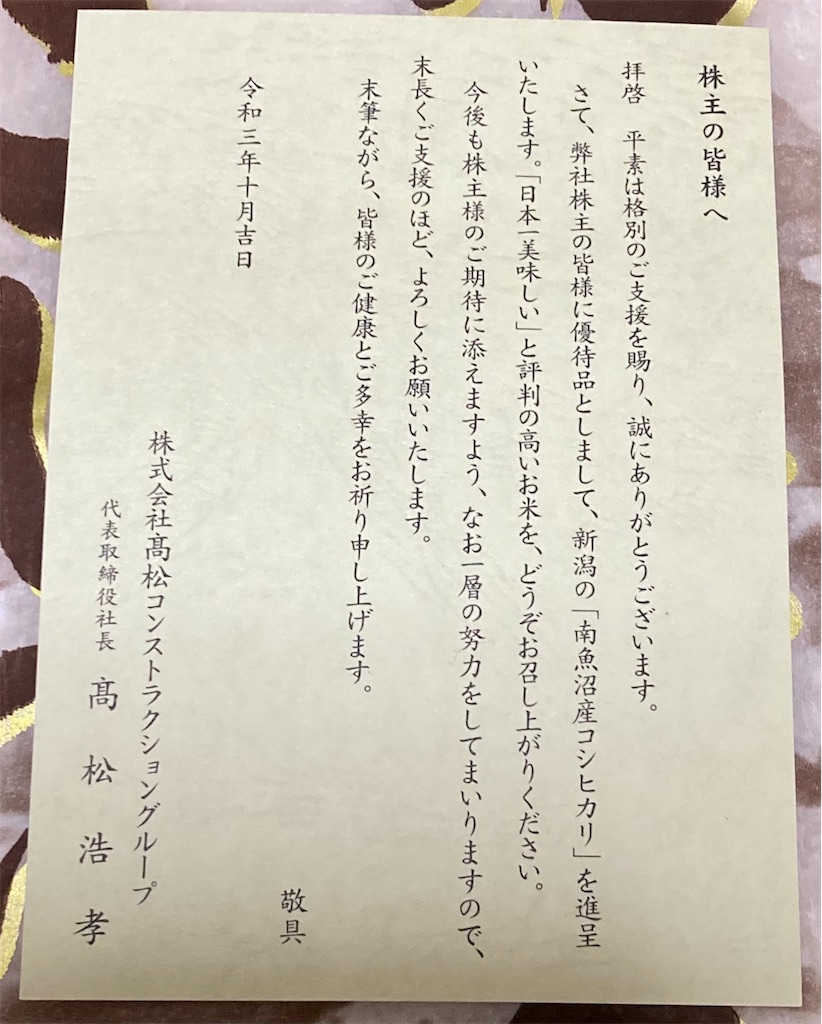 株主の皆様へ
拝啓　平素は格別のご支援を賜り、誠にありがとうございます。
さて、弊社株主の皆様に優待品としまして、新潟の「南魚沼産コシヒカリ」を進呈
いたします。「日本一美味しい」と評判の高いお米を、どうぞお召し上がりください。
今後も株主様のご期待に添えますよう、なお一層の努力をしてまいりますので、
末長くご支援のほど、よろしくお願いいたします。
末筆ながら、皆様のご健康とご多幸をお祈り申し上げます。
敬具
令和三年十月吉日
株式会社髙松コンストラクショングループ
代表取締役社長　髙松浩孝